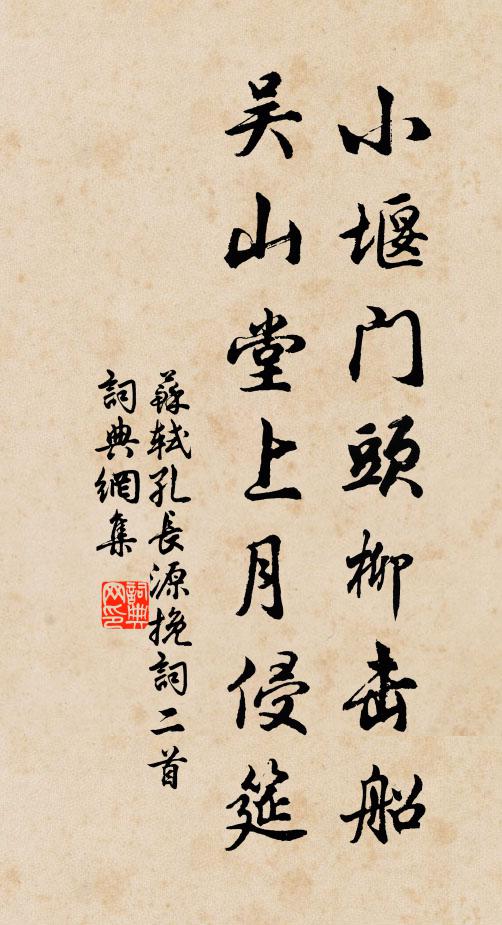 小堰门頭柳击船
吴山堂上月侵筵
蘇軾孔長源挽詞二首
詞典網集
詞典
网印